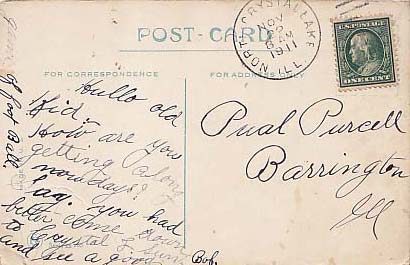 POST-CARD
NORTH CRYSTAL LAKE
NOV
8 AM
1911
ILL.
U.S. POSTAGE
ONE CENT
FOR CORRESPONDENCE
FOR ADDRESS ONLY
Hullo old
Kid.
How are you
getting along
nowdays?
Say. You had
better come down
to Crystal
and see a good
game
of foot Ball
Bob.
Pual Purcell
Barrington
Ill